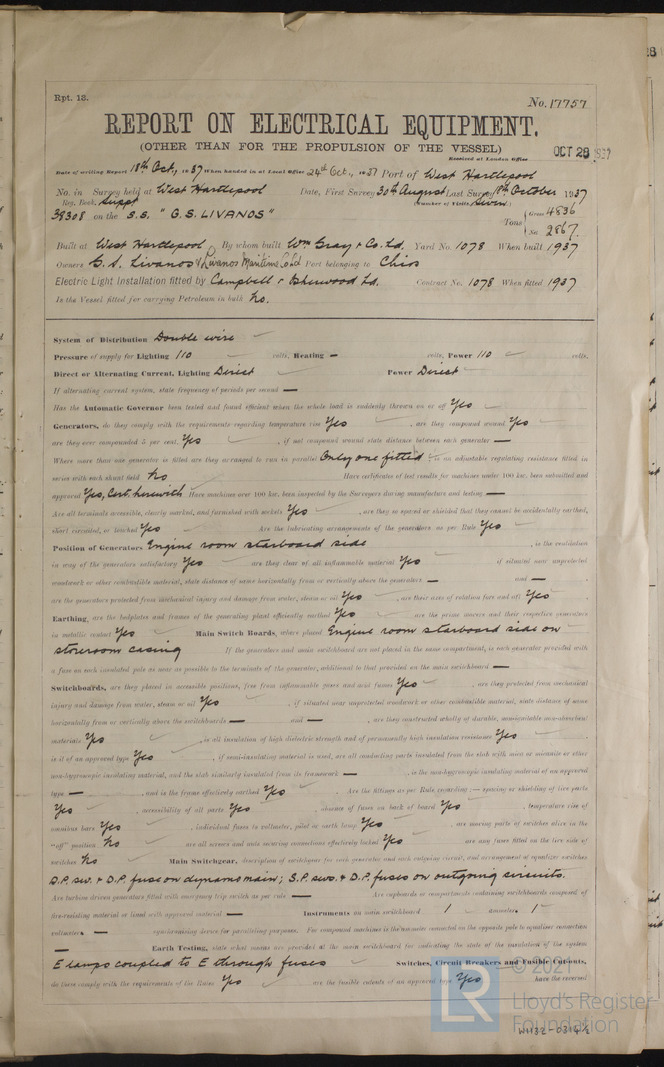 Rpt. 13.
No. 17757
REPORT ON ELECTRICAL EQUIPMENT.
(OTHER THAN FOR THE PROPULSION OF THE VESSEL)
Received at London Office OCT 28 1937
Date of writing Report 18th Oct., 1937 When handed in at Local Office 24th Oct., 1937 Port of West Hartlepool
No. in Survey held at West Hartlepool Date, First Survey 30th August Last Survey 8th October 1937
Reg. Book. Suppt (Number of Visits, Seven)
38308 on the S.S. "G.S. LIVANOS" Tons { Gross 4836
Net 2867.
Built at West Hartlepool By whom built Wm Gray & Co. Ld. Yard No. 1078 When built 1937
Owners G. S. Livanos & Livanos Maritime Co Ld Port belonging to Chios
Electric Light Installation fitted by Campbell & Isherwood Ld. Contract No. 1078 When fitted 1937
Is the Vessel fitted for carrying Petroleum in bulk No.
System of Distribution Double wire
Pressure of supply for Lighting 110 volts, Heating — volts, Power 110 volts.
Direct or Alternating Current, Lighting Direct Power Direct
If alternating current system, state frequency of periods per second —
Has the Automatic Governor been tested and found efficient when the whole load is suddenly thrown on or off Yes
Generators, do they comply with the requirements regarding temperature rise Yes , are they compound wound Yes
are they over compounded 5 per cent. Yes , if not compound wound state distance between each generator —
Where more than one generator is fitted are they arranged to run in parallel Only one fitted , is an adjustable regulating resistance fitted in
series with each shunt field No Have certificates of test results for machines under 100 kw. been submitted and
approved Yes, Cert. herewith Have machines over 100 kw. been inspected by the Surveyors during manufacture and testing —
Are all terminals accessible, clearly marked, and furnished with sockets Yes , are they so spaced or shielded that they cannot be accidentally earthed,
short circuited, or touched Yes Are the lubricating arrangements of the generators as per Rule Yes
Position of Generators Engine room starboard side , is the ventilation
in way of the generators satisfactory Yes are they clear of all inflammable material Yes if situated near unprotected
woodwork or other combustible material, state distance of same horizontally from or vertically above the generators — and —
are the generators protected from mechanical injury and damage from water, steam or oil Yes , are their axes of rotation fore and aft Yes
Earthing, are the bedplates and frames of the generating plant efficiently earthed Yes are the prime movers and their respective generators
in metallic contact Yes Main Switch Boards, where placed Engine room starboard side on
storeroom casing If the generators and main switchboard are not placed in the same compartment, is each generator provided with
a fuse on each insulated pole as near as possible to the terminals of the generator, additional to that provided on the main switchboard —
Switchboards, are they placed in accessible positions, free from inflammable gases and acid fumes Yes , are they protected from mechanical
injury and damage from water, steam or oil Yes , if situated near unprotected woodwork or other combustible material, state distance of same
horizontally from or vertically above the switchboards — and — , are they constructed wholly of durable, non-ignitable non-absorbent
materials Yes , is all insulation of high dielectric strength and of permanently high insulation resistance Yes
is it of an approved type Yes , if semi-insulating material is used, are all conducting parts insulated from the slab with mica or micanite or other
non-hygroscopic insulating material, and the slab similarly insulated from its framework — , is the non-hygroscopic insulating material of an approved
type — , and is the frame effectively earthed Yes Are the fittings as per Rule regarding :— spacing or shielding of live parts
Yes , accessibility of all parts Yes , absence of fuses on back of board Yes , temperature rise of
omnibus bars Yes , individual fuses to voltmeter, pilot or earth lamp Yes , are moving parts of switches alive in the
"off" position No are all screws and nuts securing connections effectively locked Yes are any fuses fitted on the live side of
switches No Main Switchgear, description of switchgear for each generator and each outgoing circuit, and arrangement of equalizer switches
D.P. sw. & D.P. fuse on dynamo main; S.P. sws. & D.P. fuses on outgoing circuits.
Are turbine driven generators fitted with emergency trip switch as per rule — Are cupboards or compartments containing switchboards composed of
fire-resisting material or lined with approved material — Instruments on main switchboard 1 ammeters 1
voltmeters — synchronising device for paralleling purposes. For compound machines is the ammeter connected on the opposite pole to equaliser connection
— Earth Testing, state what means are provided at the main switchboard for indicating the state of the insulation of the system
E lamps coupled to E through fuses Switches, Circuit Breakers and Fusible Cut-outs,
do these comply with the requirements of the Rules Yes are the fusible cutouts of an approved type Yes have the reversed
© 2021
LR
Lloyd's Register
Foundation
W1132-0314 1/2